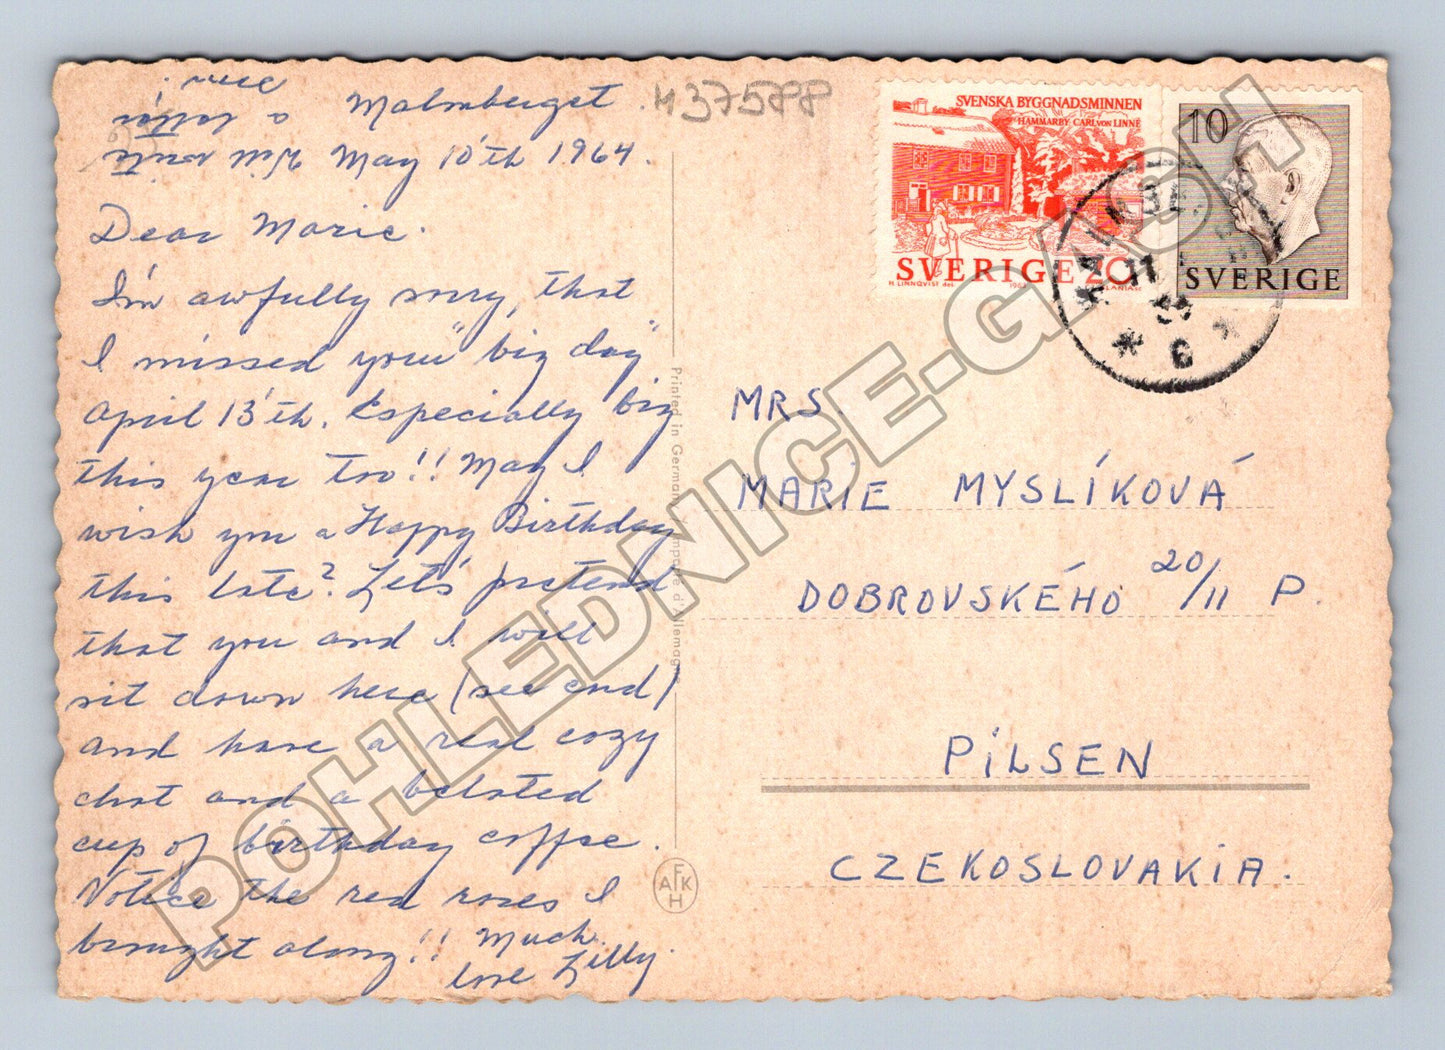 Malmberget.
May 10'th 1964.
Dear Marie.
I'm awfully sorry, that
I missed your "big day"
April 13'th. Especially big
this year too!! May I
wish you a Happy Birthday
this late? Let's pretend
that you and I will
sit down here (see end)
and have a real cozy
chat and a belated
cup of birthday coffee.
Notice the red roses I
brought along!! Much
love Lilly.
a letter
write
soon
M37588
Printed in Germany
Imprimé d'Allemagne
AFKH
SVENSKA BYGGNADSMINNEN
HAMMARBY CARL VON LINNÉ
SVERIGE 20
H. LINNQVIST del.
10
SVERIGE
11
6
MRS.
MARIE MYSLÍKOVÁ
DOBROVSKÉHO 20/II P.
PILSEN
CZEKOSLOVAKIA.
POHLEDNICE-GASH